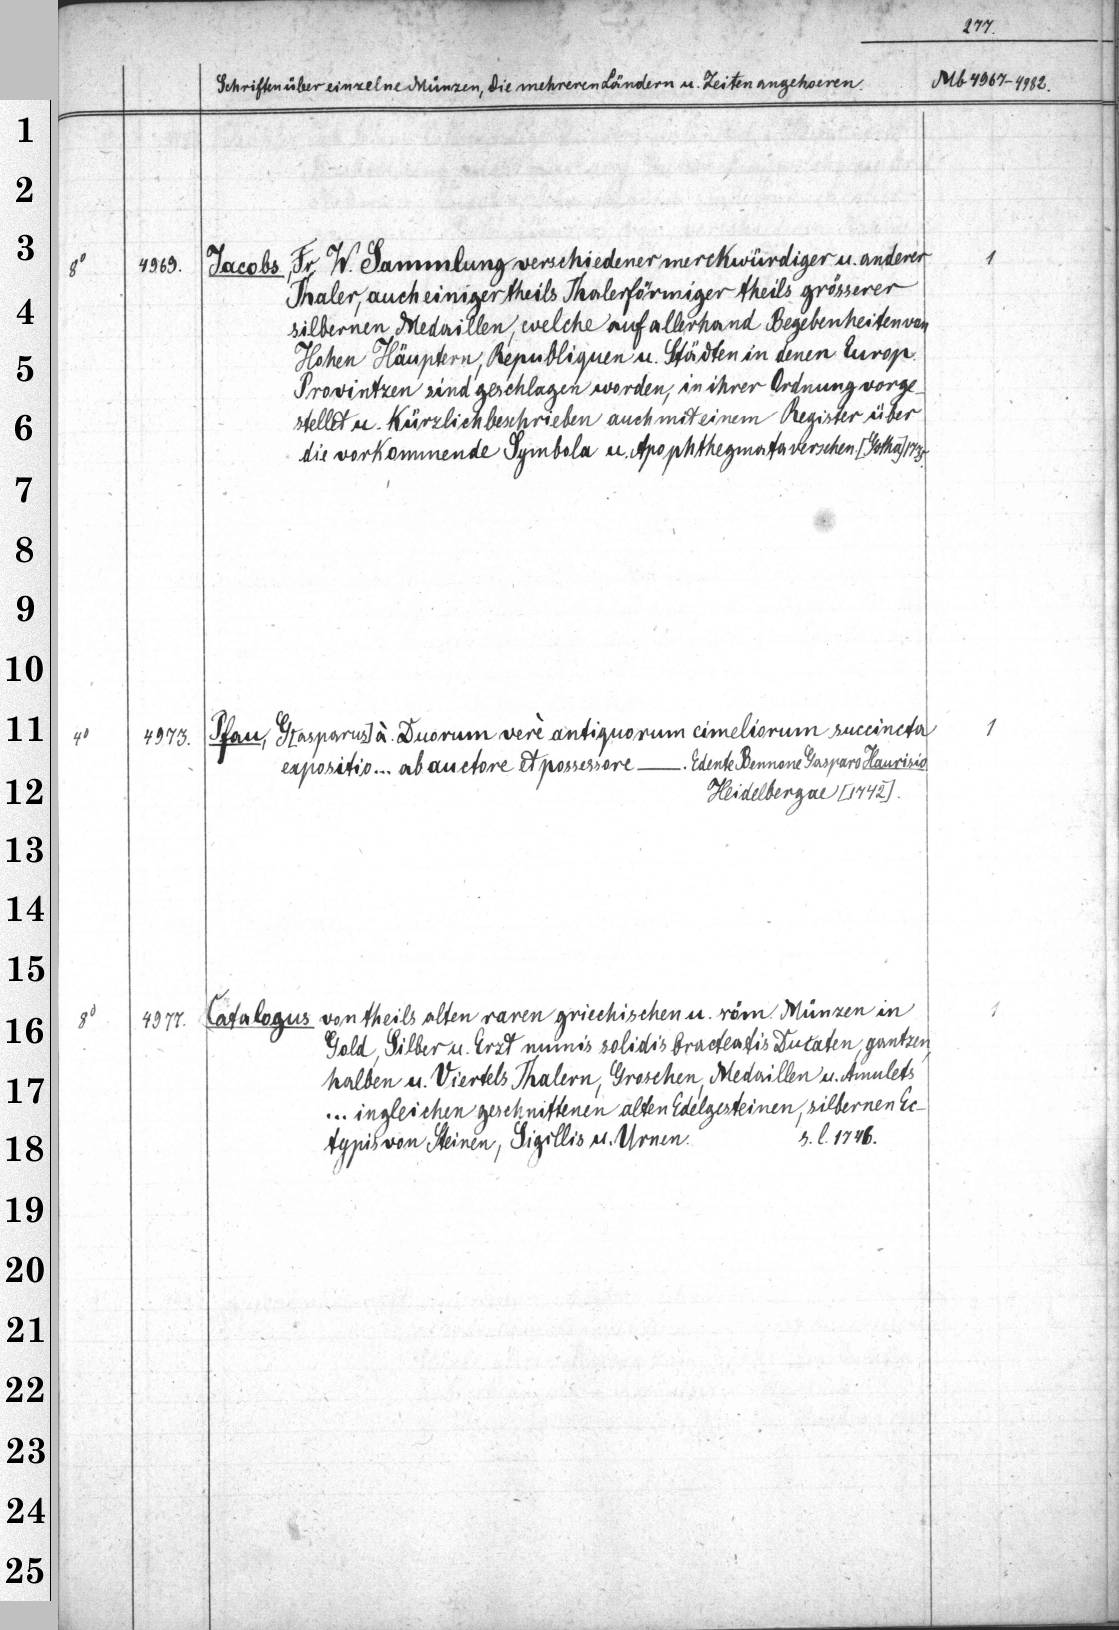 277.
Schriften über einzelne Münzen, die mehreren Ländern u. Zeiten angehoeren. Mb 4967-4982.
1
2
3
8° 4969. Jacobs, Fr. W. Sammlung verschiedener merckwürdiger u. anderer 1
Thaler, auch einiger theils Thalerförmiger theils grösserer
4
silbernen Medaillen, welche auf allerhand Begebenheiten von
Hohen Häuptern, Republiquen u. Städten in denen Europ.
5
Provintzen sind geschlagen worden, in ihrer Ordnung vorge-
stellet u. Kürzlich beschrieben auch mit einem Register über
6
die vorkommende Symbola u. Apophthegmata versehen. [Gotha] 1735.
7
8
9
10
11
4° 4973. Pfau, G[asparus] à. Duorum verè antiquorum cimeliorum succincta 1
expositio... ab auctore et possessore ——. Edente Bennone Gasparo Haurisio
12
Heidelbergae [1742].
13
14
15
8° 4977. Catalogus von theils alten raren griechischen u. röm. Münzen in 1
16
Gold, Silber u. Erzt numis solidis bracteatis Ducaten, gantzen,
halben u. Viertels Thalern, Groschen, Medaillen u. Amulets
17
... ingleichen geschnittenen alten Edelgesteinen, silbernen Ec-
18
typis von Steinen, Sigillis u. Urnen. s. l. 1746.
19
20
21
22
23
24
25